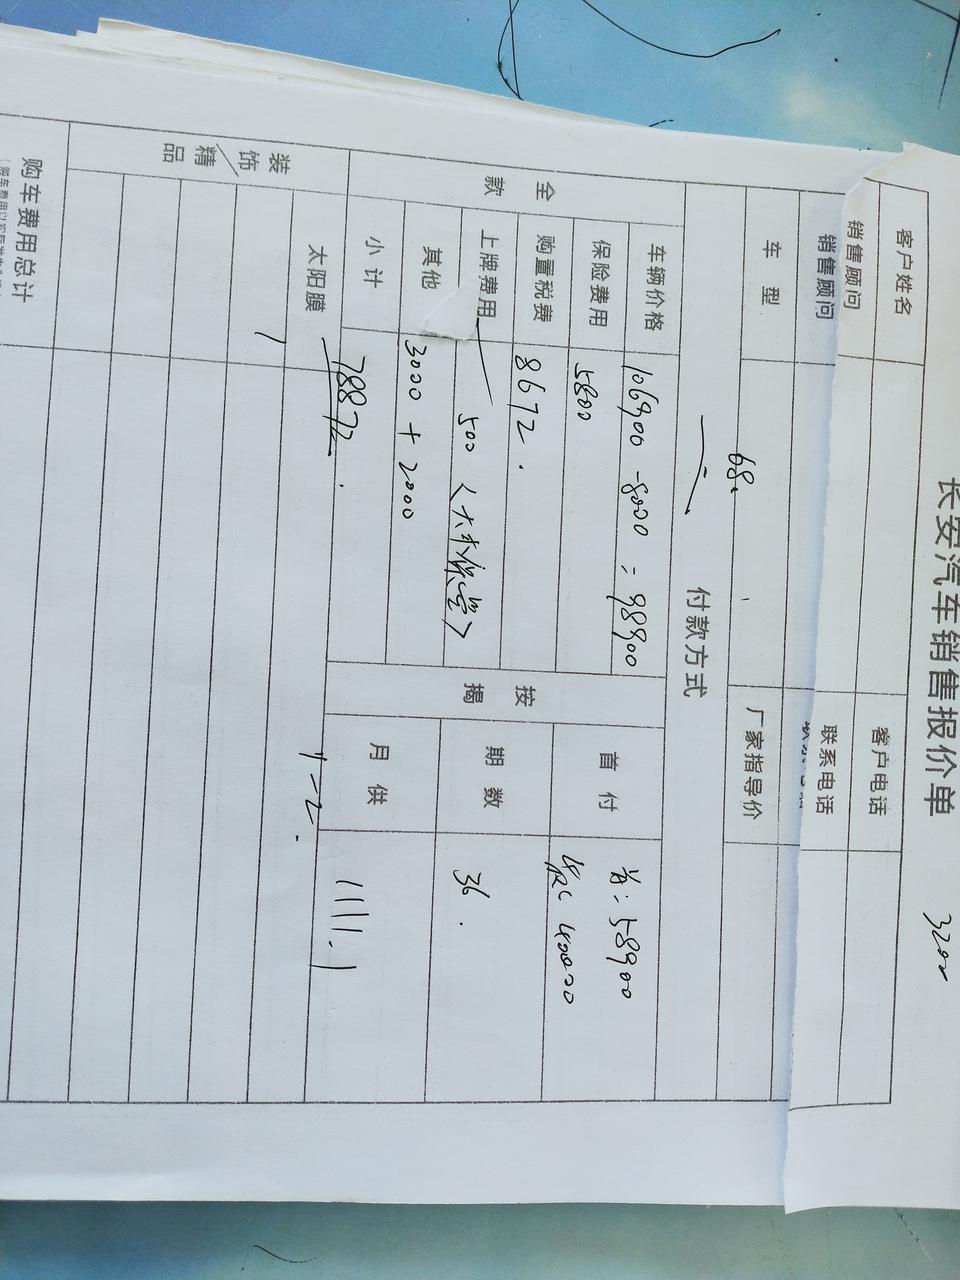 长安汽车销售报价单 3200
客户姓名 客户电话
销售顾问 联系电话
销售顾问
车型 68. 厂家指导价
付款方式
全款 车辆价格 106900 -8000 = 98900 按揭 首付 首:58900
保险费用 5800 40000
购置税费 8672.
上牌费用 500 期数 36.
其他 3000 + 2000
小计 78872. 月供 1111.1
装饰/精品 太阳膜
购车费用总计